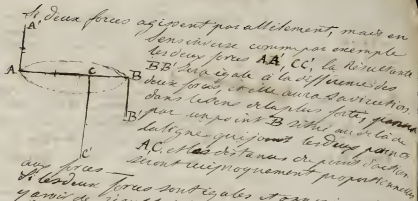 Si deux forces agissent parallèlement, mais en
A'
sens inverse comme par exemple
les deux forces AA', CC', la Résultante
BB' sera égale à la différence des
deux forces, et elle aura sa direction
A C B
dans le sens de la plus forte,
par un point B situé au delà de
B'
la ligne qui joint les deux points
A, C, et les distances
C'
seront réciproquement proportionnelles
aux forces
Si les deux forces sont égales